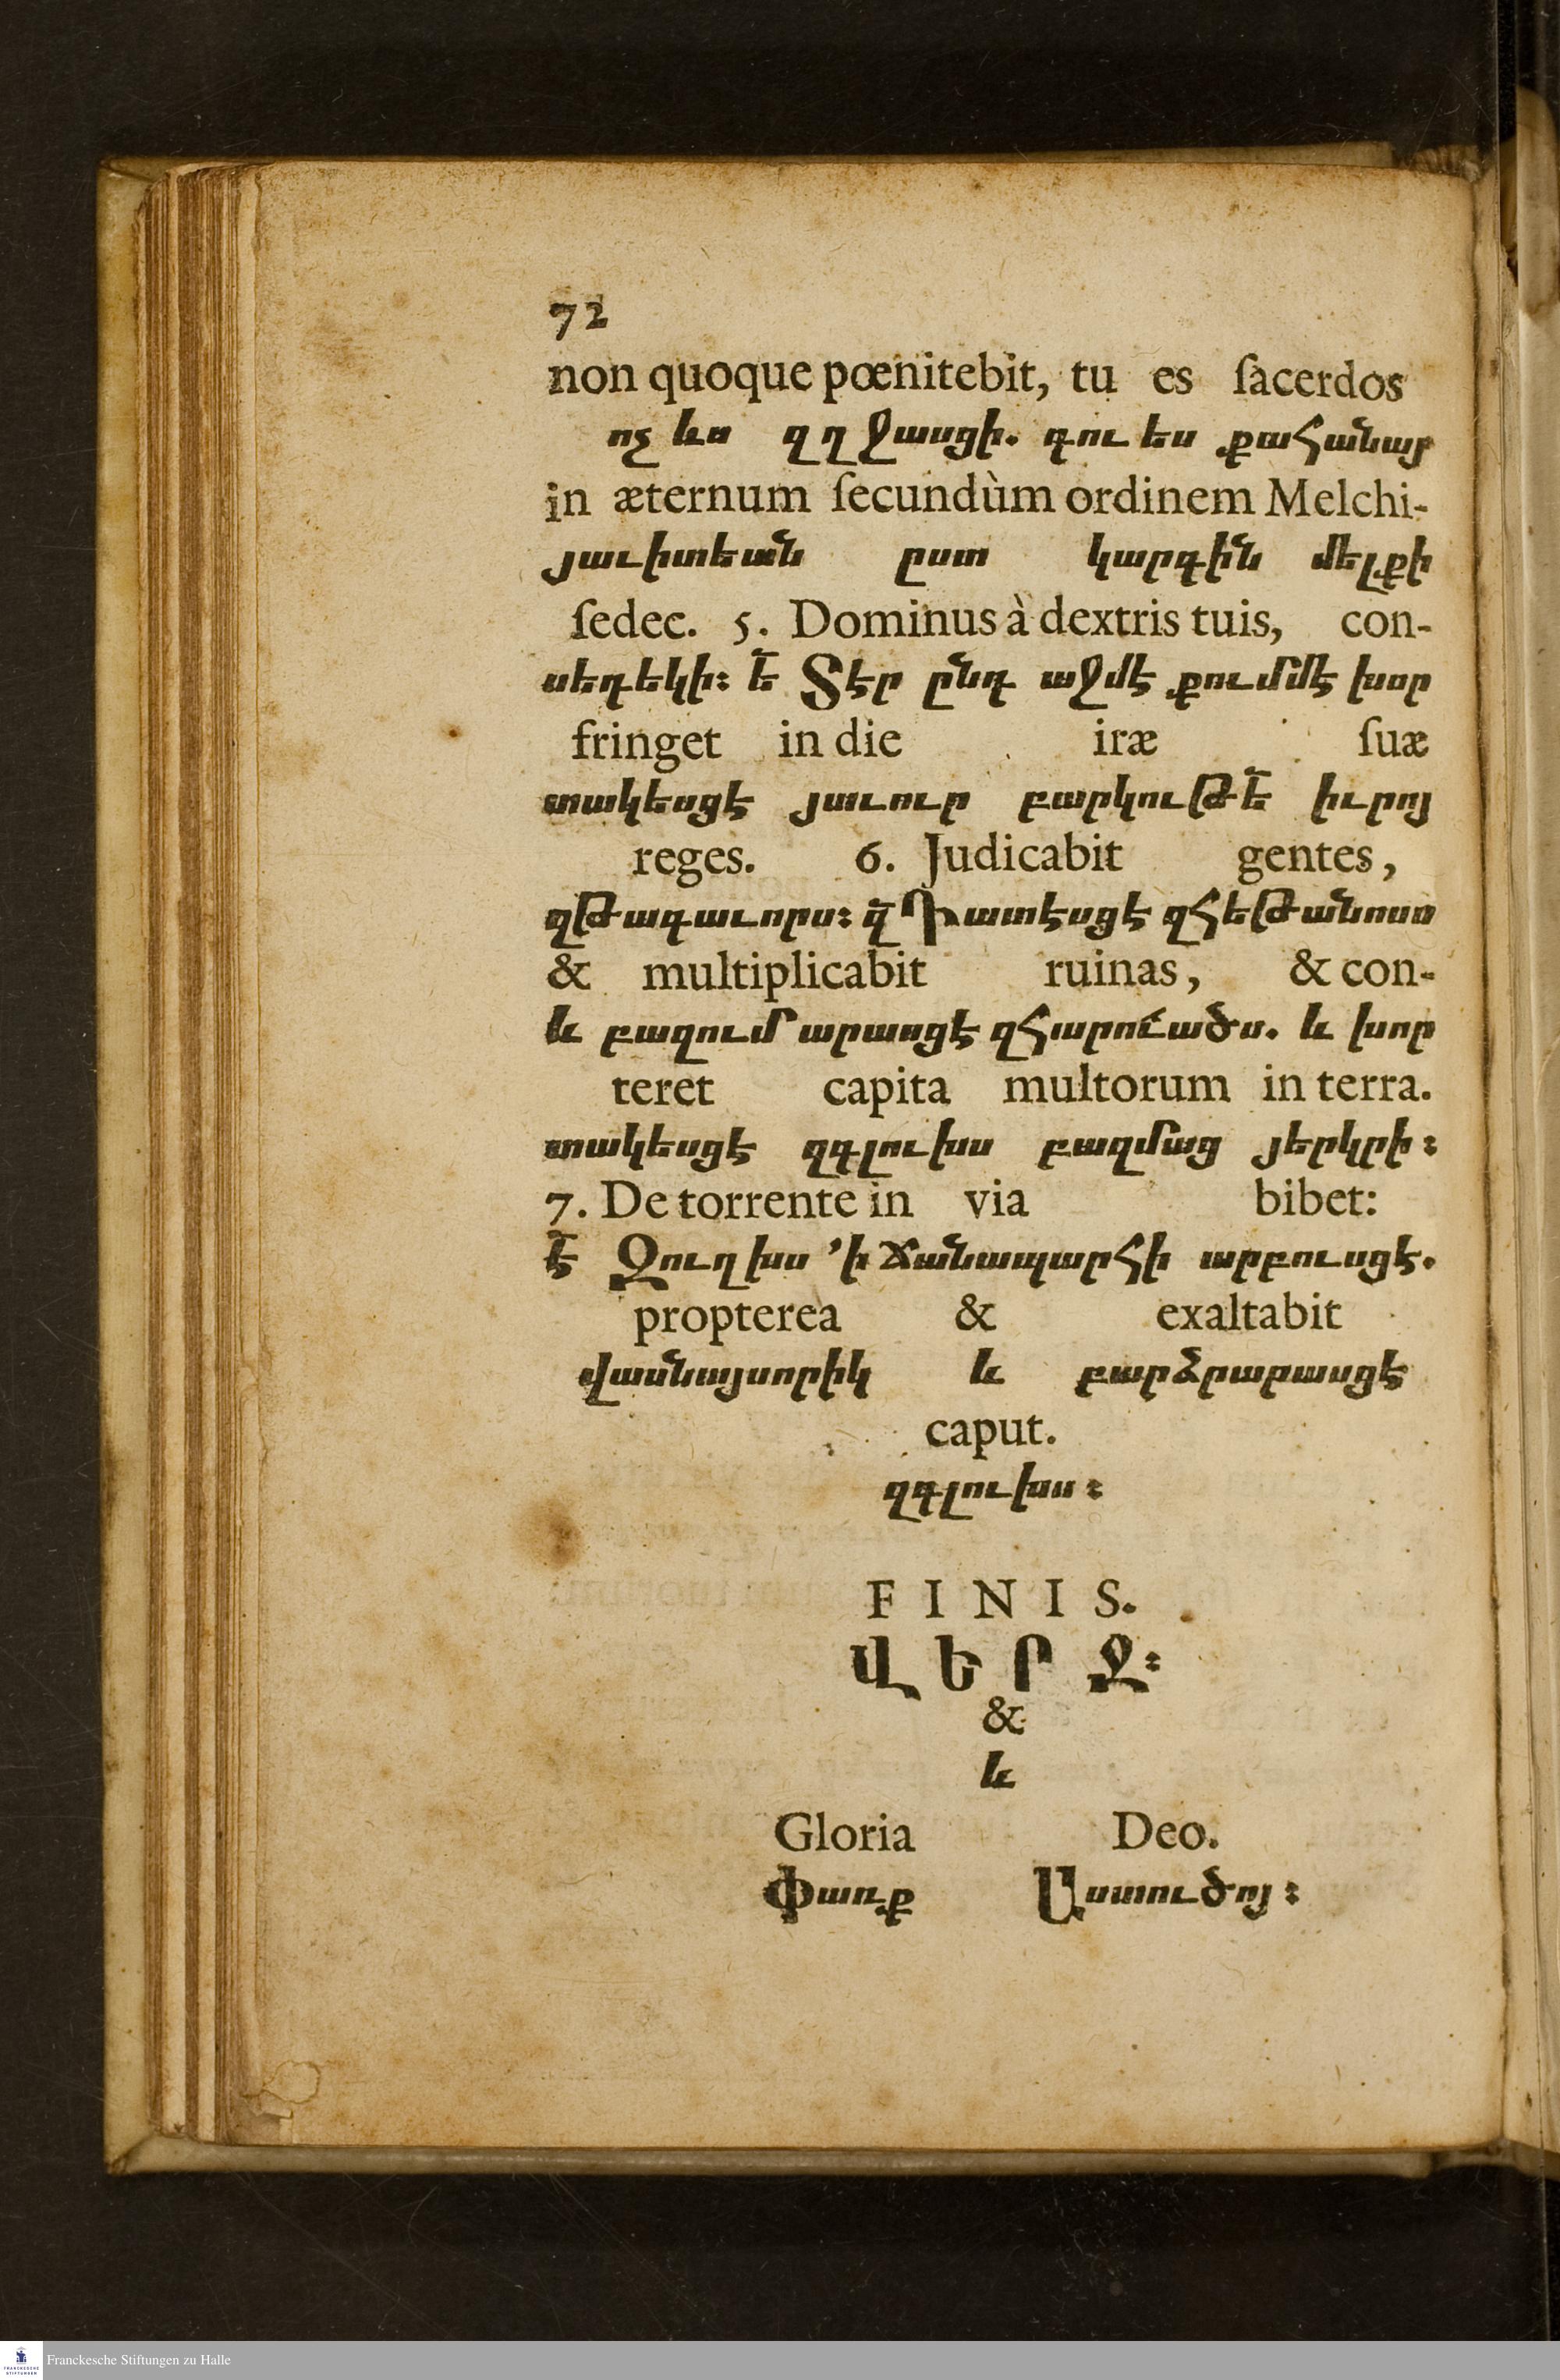 72
non quoque pœnitebit, tu es ſacerdos
ոչ ևս զղջասցի. դու ես քահանայ
in æternum ſecundùm ordinem Melchi-
յաւիտեան ըստ կարգին մելքի
ſedec. 5. Dominus à dextris tuis, con-
սեդեկի։ ե̄ Տէր ընդ աջմէ քումմէ խոր
fringet in die iræ ſuæ
տակեսցէ յաւուր բարկուԹե̄ իւրոյ
reges. 6. Judicabit gentes,
զԹագաւորս։ զ̄ Դատեսցէ զհեԹանոսս
& multiplicabit ruinas, & con-
և բազում արասցէ զհարուածս. և խոր
teret capita multorum in terra.
տակեսցէ զգլուխս բազմաց յերկրի։
7. De torrente in via bibet:
է̄ Ջուղխս ՚ի ճանապարհի արբուսցէ.
propterea & exaltabit
վասնայսորիկ և բարձրարասցէ
caput.
զգլուխս։
FINIS.
ՎԵՐՋ։
&
և
Gloria Deo.
Փառք Աստուծոյ։
Franckesche Stiftungen zu Halle
FRANCKESCHE
STIFTUNGEN